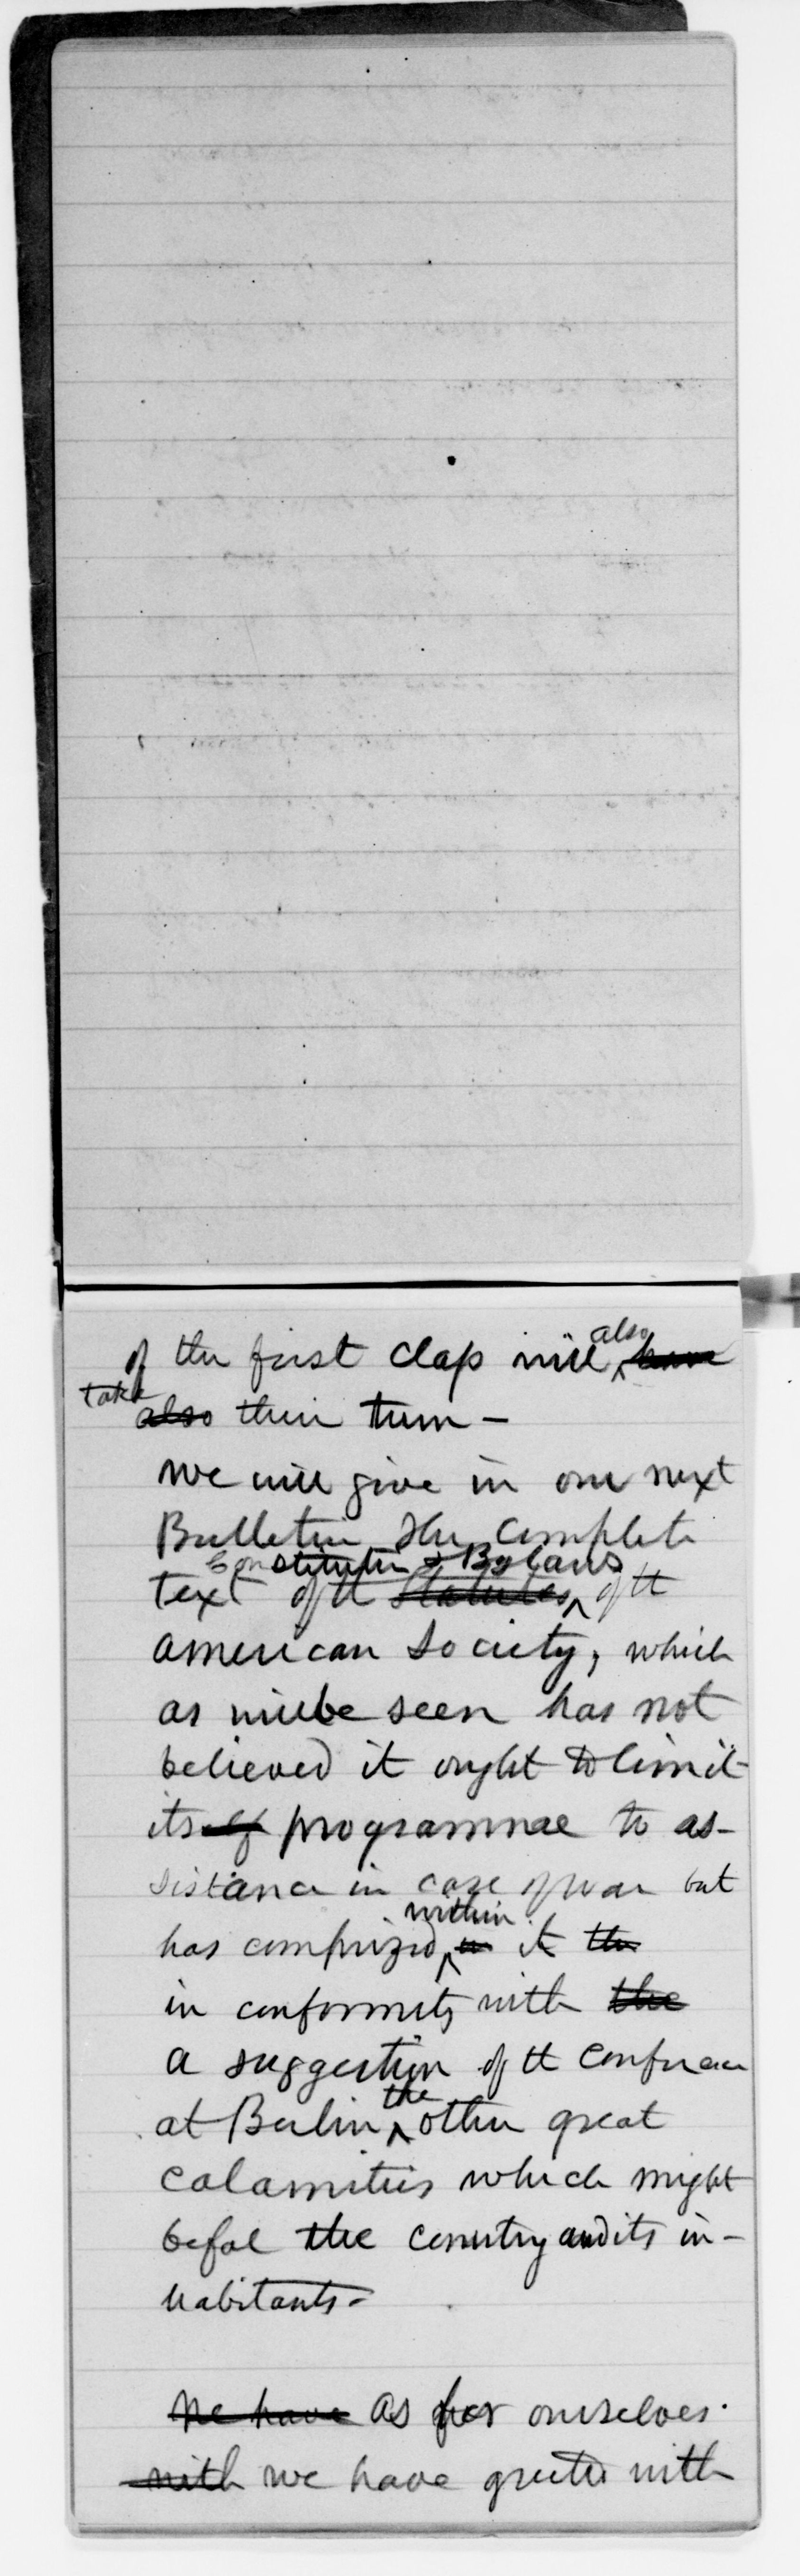 also
of the first clap will ^ have
take
also their turn -
We will give in our next
Bulletin the complete
Constitution & Bylaws
text of tt Statutes ^ of tt
American Society, which
as will be seen has not
believed it ought to limit
itself programmae to as-
sistance in case of war but
within
has comprized ^ in it the
in conformity with the
a suggestion of tt Conference
the
at Berlin ^ other great
calamities which might
befal the country and its in-
habitants -
We have As for ourselves.
with we have greeted with